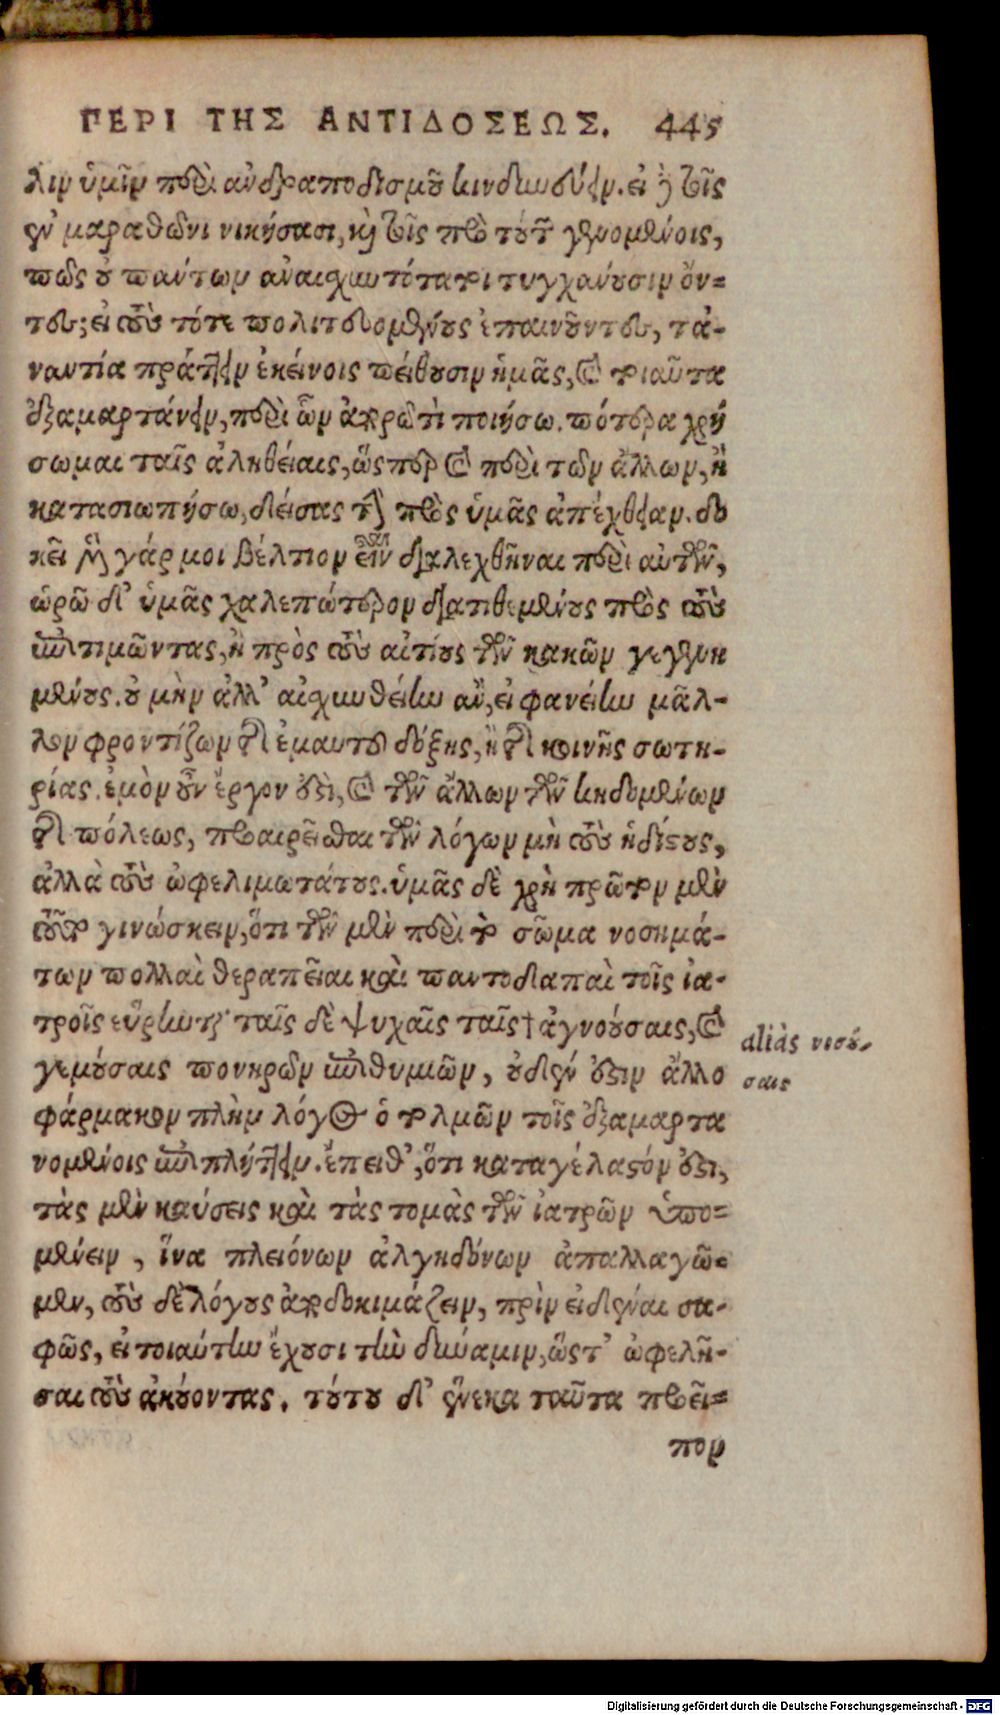 ΠΕΡΙ ΤΗΣ ΑΝΤΙΔΟΣΕΩΣ. 445
λιν ὑμῖν περὶ ἀνδραποδισμοῦ κινδυνεύειν. εἰ δὲ τοῖς
ἐν μαραθῶνι νικήσασι, καὶ τοῖς πρὸ τούτου γενομένοις,
πῶς οὐ πάντων ἀναισχυντότατοι τυγχάνουσιν ὄν-
τες; εἰ τοὺς τότε πολιτευομένους ἐπαινοῦντες, τἀ-
ναντία πράττειν ἐκείνοις πείθουσιν ἡμᾶς, καὶ τοιαῦτα
ἐξαμαρτάνειν, περὶ ὧν ἀπορῶ τὶ ποιήσω. πότερα χρή
σωμαι ταῖς ἀληθείαις, ὥσπερ καὶ περὶ τῶν ἄλλων, ἢ
κατασιωπήσω, δείσας τὴν πρὸς ὑμᾶς ἀπέχθειαν. δο
κεῖ μὲν γάρ μοι βέλτιον εἶναι διαλεχθῆναι περὶ αὐτῶν,
ὁρῶ δ' ὑμᾶς χαλεπώτερον διατιθεμένους πρὸς τοὺς
ἐπιτιμῶντας, ἢ πρὸς τοὺς αἰτίους τῶν κακῶν γεγενη
μένους. οὐ μὴν ἀλλ' αἰσχυνθείην ἂν, εἰ φανείην μᾶλ-
λον φροντίζων τῆς ἐμαυτοῦ δόξης, ἢ τῆς κοινῆς σωτη-
ρίας. ἐμὸν οὖν ἔργον ἐστὶ, καὶ τῶν ἄλλων τῶν κηδομένων
τῆς πόλεως, προαιρεῖσθαι τῶν λόγων μὴ τοὺς ἡδίστους,
ἀλλὰ τοὺς ὠφελιμωτάτους. ὑμᾶς δὲ χρὴ πρῶτον μὲν
τοῦτο γινώσκειν, ὅτι τῶν μὲν περὶ τὸ σῶμα νοσημά-
των πολλαὶ θεραπεῖαι καὶ παντοδαπαὶ τοῖς ἰα-
τροῖς εὕρηνται ταῖς δὲ ψυχαῖς ταῖς† ἀγνούσαις, καὶ
γεμούσαις πονηρῶν ἐπιθυμιῶν, οὐδέν ἐστιν ἄλλο
φάρμακον πλὴν λόγος ὁ τολμῶν τοῖς ἐξαμαρτα
νομένοις ἐπιπλήττειν. ἔπειθ', ὅτι καταγέλαστόν ἐστι,
τὰς μὲν καύσεις καὶ τὰς τομὰς τῶν ἰατρῶν ὑπο-
μένειν, ἵνα πλειόνων ἀλγηδόνων ἀπαλλαγῶ-
μεν, τοὺς δὲ λόγους ἀποδοκιμάζειν, πρὶν εἰδέναι σα-
φῶς, εἰ τοιαύτην ἔχουσι τὴν δύναμιν, ὥστ' ὠφελῆ-
σαι τοὺς ἀκούοντας. τούτου δ' ἕνεκα ταῦτα προεῖ-
πον
aliàs νοσού-
σαις
Digitalisierung gefördert durch die Deutsche Forschungsgemeinschaft - DFG